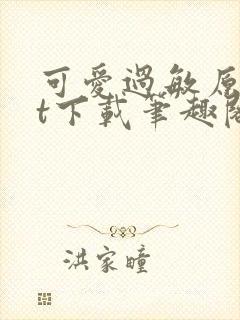 可愛過敏原
t下載筆趣閣
洪家瞳